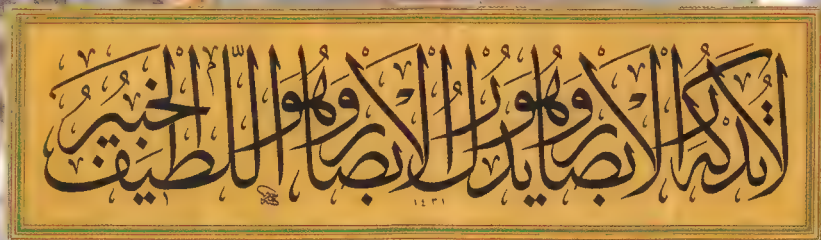 لا تدركه الابصار وهو يدرك الابصار وهو اللطيف الخبير
١٤٣١